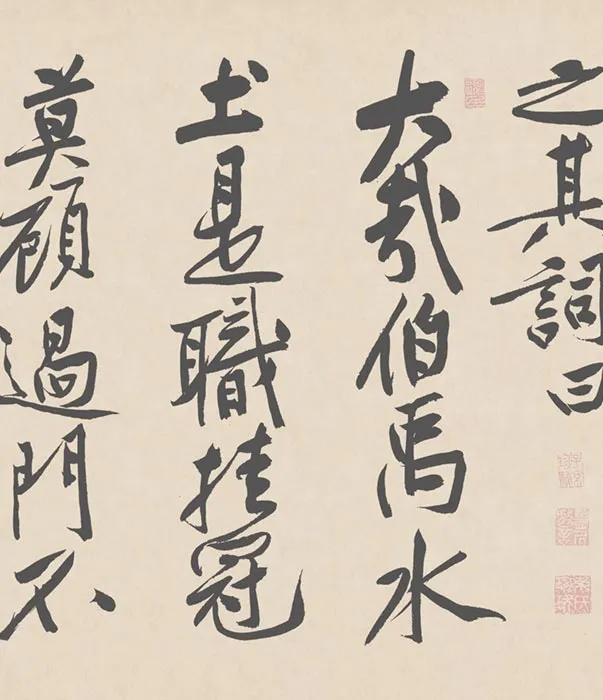 之其詞曰
大哉伯禹水
土是職挂冠
莫顧過門不